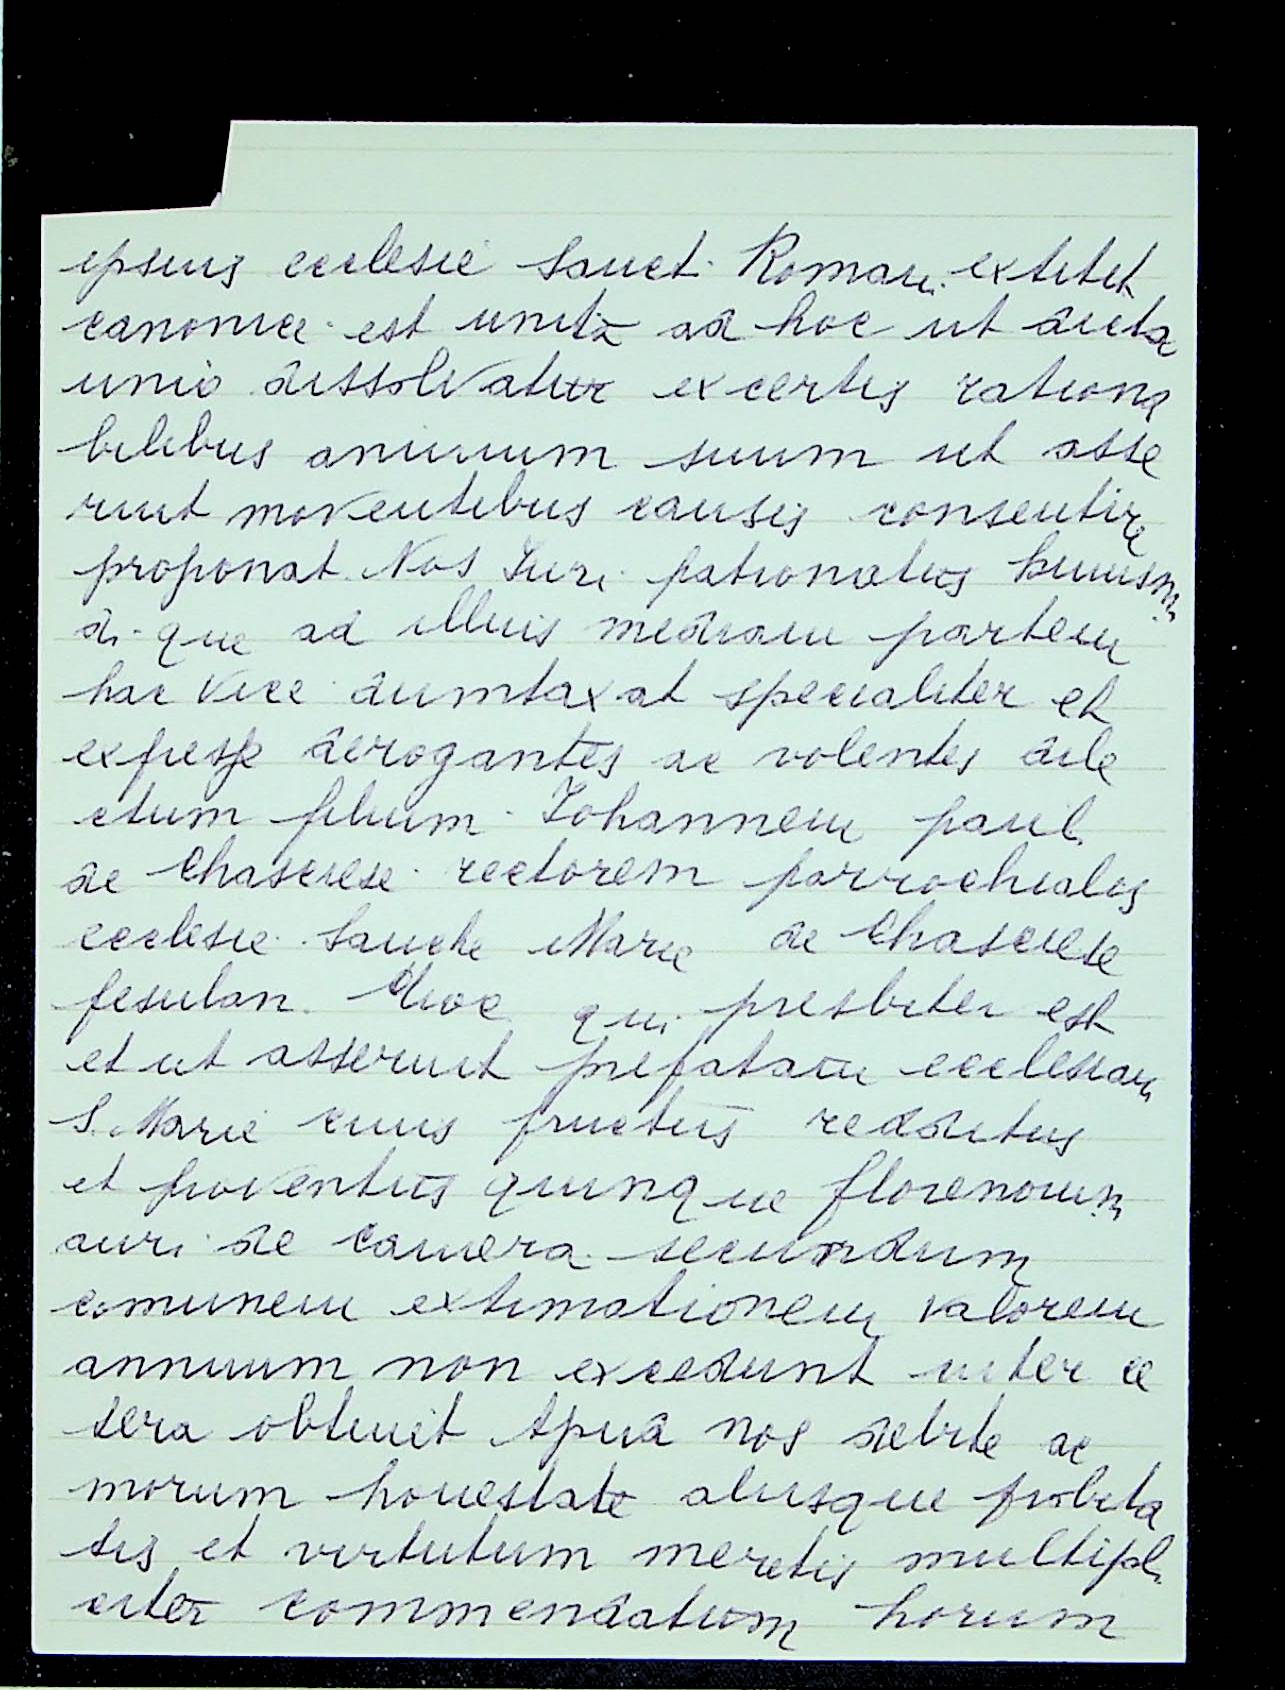 ipsius ecclesie Sanct. Roman. extitit
canonice est unita ad hoc ut dicta
unio dissolvatur ex certis rationa
bilibus animum suum ut asse
runt moventibus causis consentire
proponat. Nos Juri patronatus huiusm.
di. que ad illius mediam partem
hac vice dumtaxat specialiter et
expresse derogantes ac volentes dile
ctum filium Johannem paul.
de Chascrese rectorem parrochialis
ecclesie Sancte Marie de Chascrese
fesulan. dioc. qui presbiter est
et ut asseruit prefatam ecclesiam
S. Marie cuius fructus redditus
et proventus quinque florenorum
auri de camera secundum
comunem extimationem valorem
annuum non excedunt inter ce
tera obtinet apud nos de vite ac
morum honestate aliisque probita
tis et virtutum meritis multipl.
citer commendatum horum